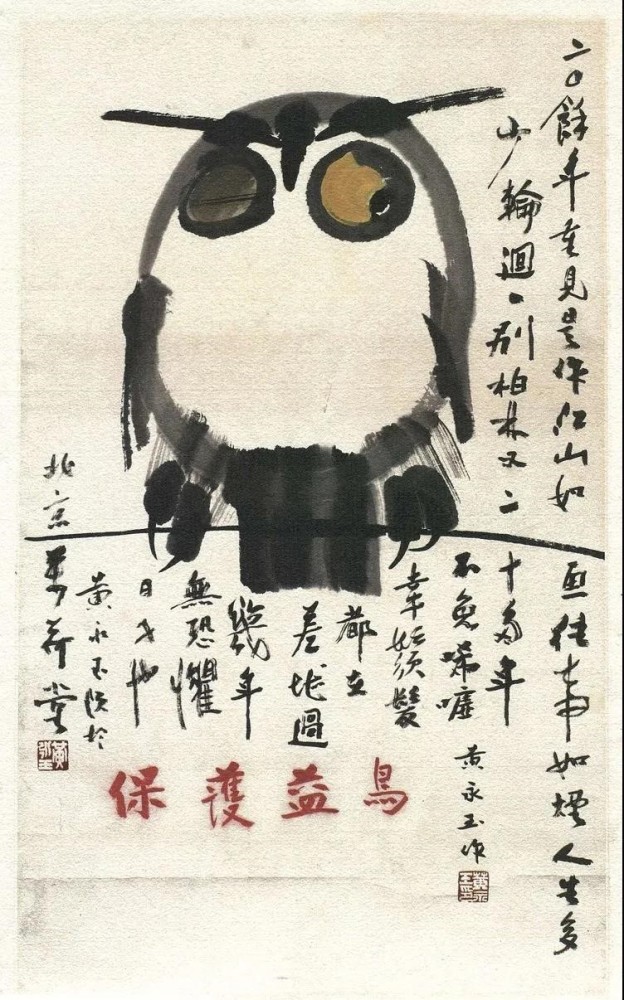 二〇餘年重見是作江山如画往事如煙人生多
少輪迴、別柏林又二十多年
不免唏噓
幸好鬚髮
都在
差堪過
幾年
無恐懼
日子也
黃永玉題於
北京萬荷堂
黃永玉作
保護益鳥